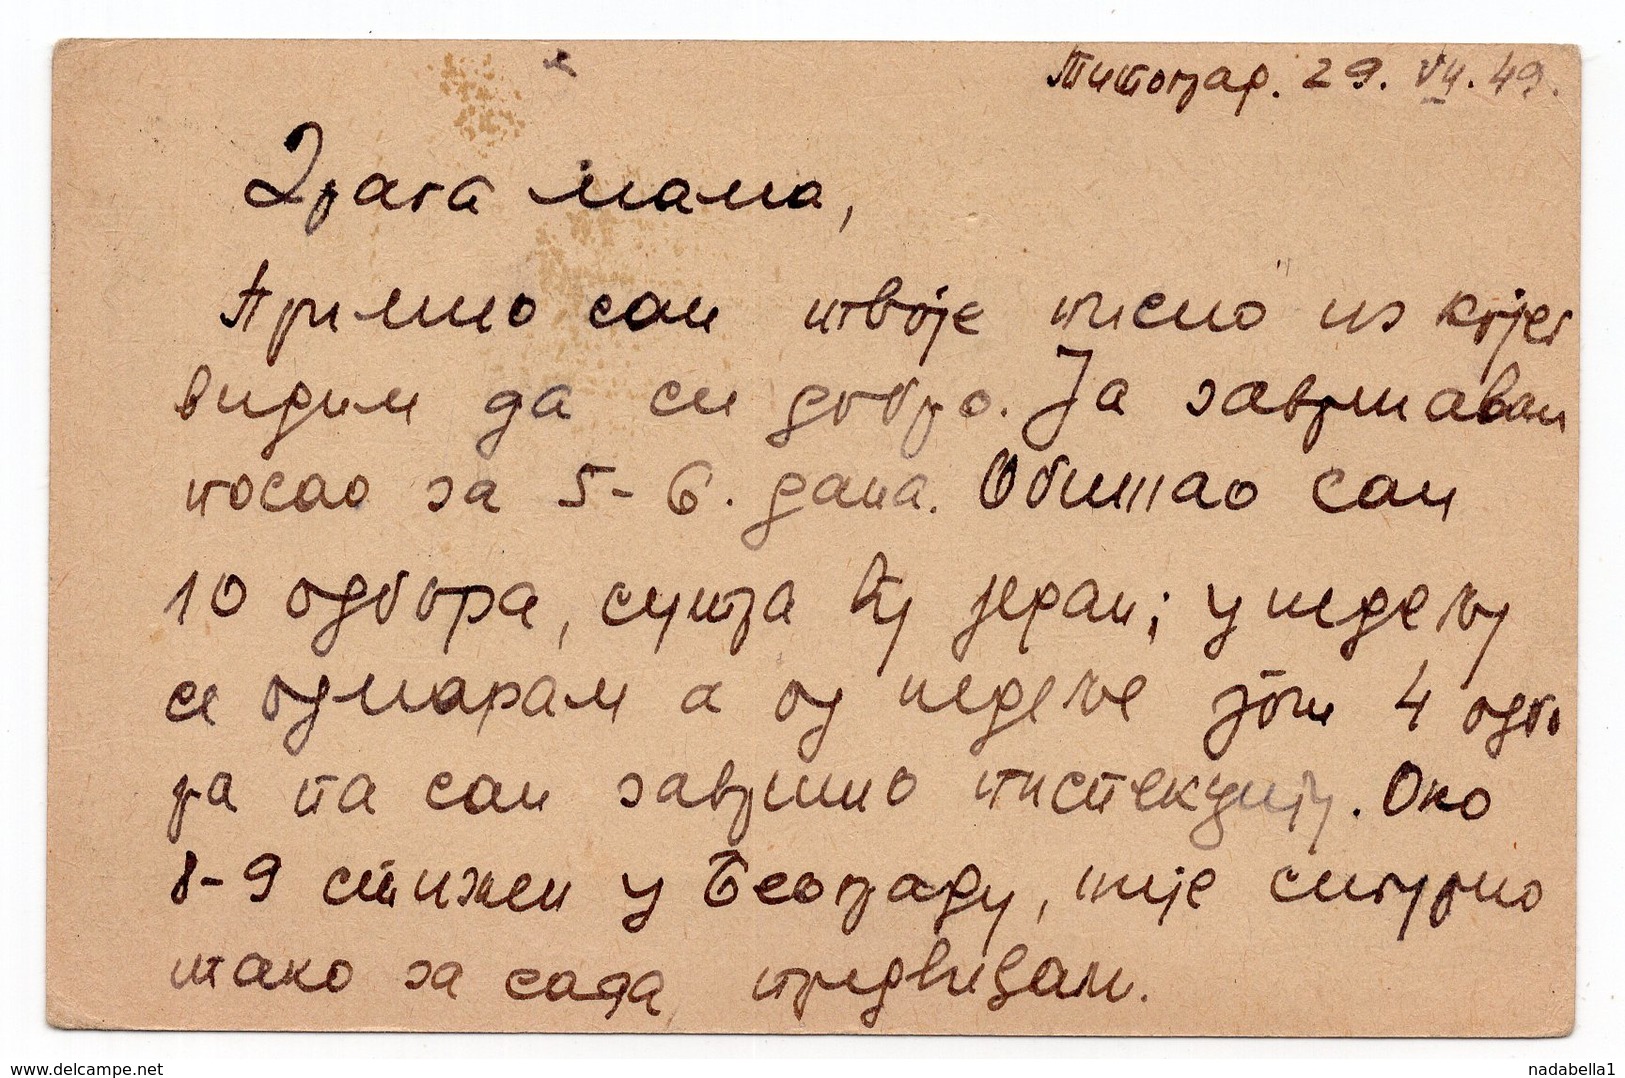 Титоград. 29. VII. 49.
Драга мама,
Примио сам твоје писмо из којег
видим да си добро. Ја завршавам
посао за 5-6. дана. Обишао сам
10 одбора, сутра још један; у недељу
се одмарам а од недеље још 4 одбо
ра па сам завршио инспекцију. Око
8-9 стижем у Београду, није сигурно
тако за сада предвиђам.
www.delcampe.net
nadabella1